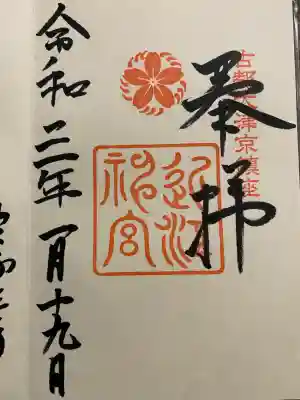 古都大津京鎮座
奉拝
近江
神宮
令和二年一月十九日